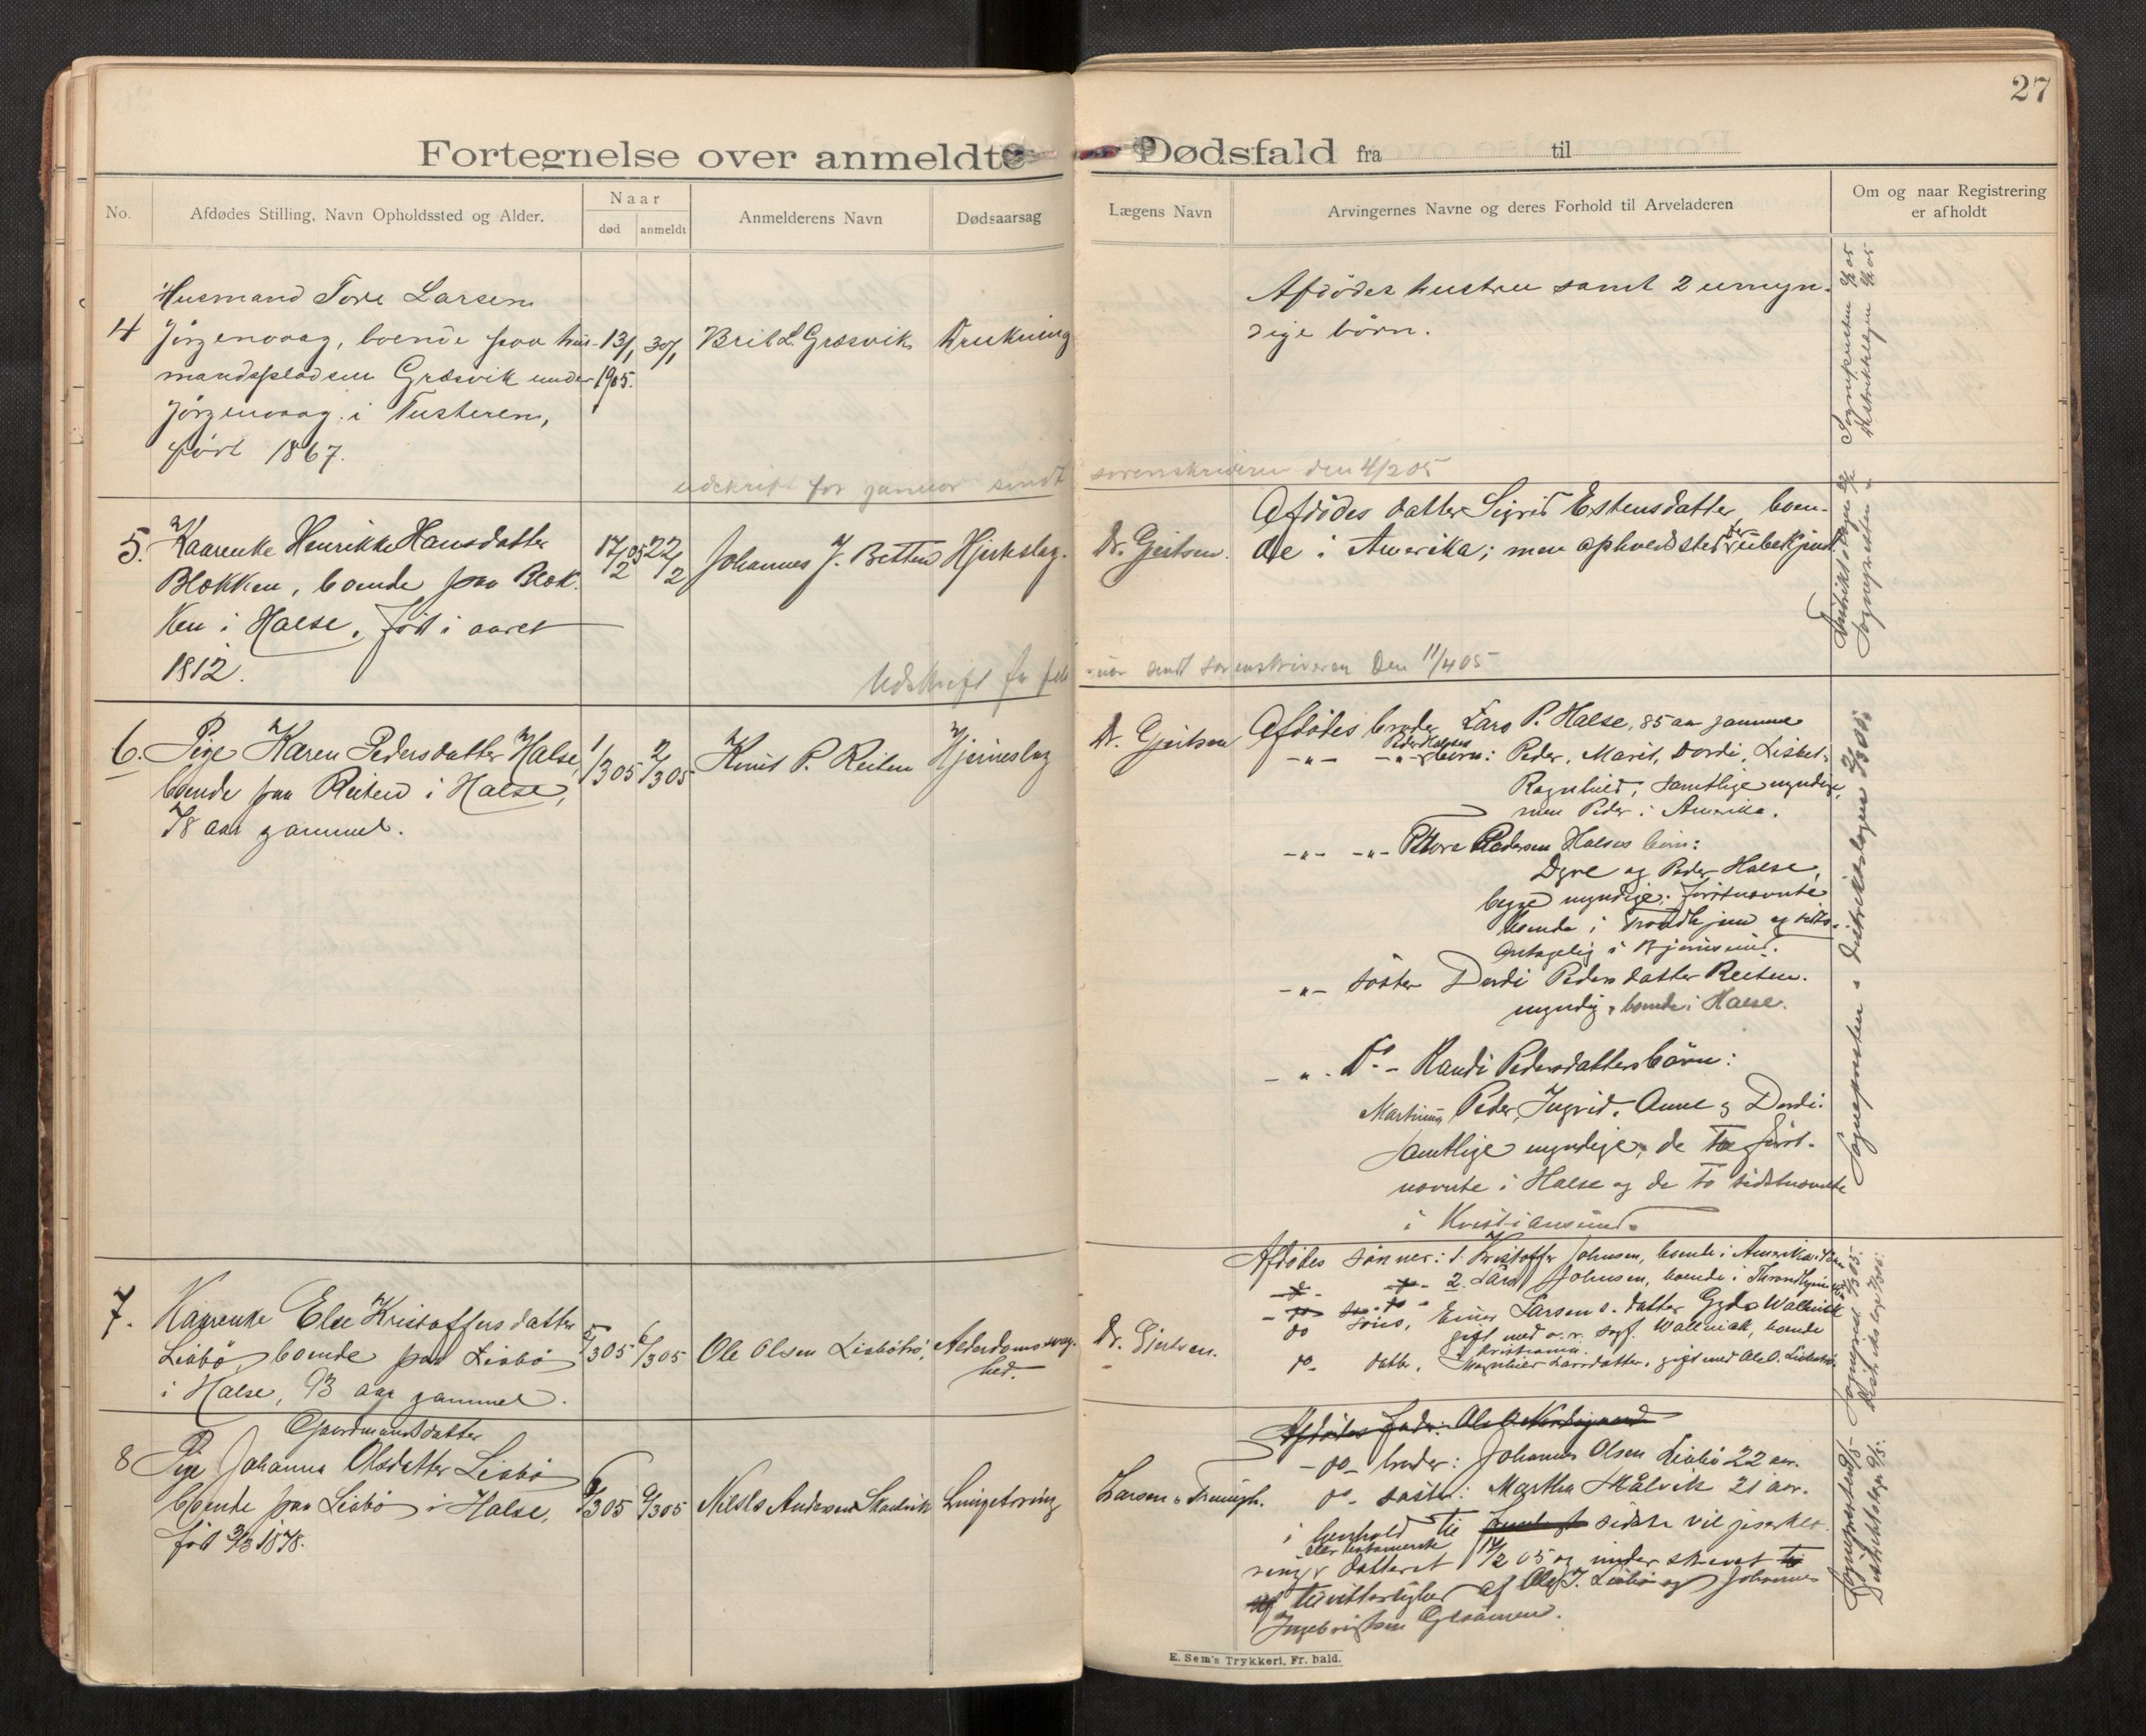 27
Fortegnelse over anmeldte Dødsfald fra til
No.
Afdødes Stilling, Navn Opholdssted og Alder.
Naar
død
anmeldt
Anmelderens Navn
Dødsaarsag
Lægens Navn
Arvingernes Navne og deres Forhold til Arveladeren
Om og naar Registrering
er afholdt
4
Husmand Tore Larsen
Jørgenvaag, boende paa hus-
mandspladsen Græsvik under
Jørgenvaag i Tusteren,
født 1867.
13/1
1905.
30/1
Brit L. Græsvik
Drukning
Afdødes hustru samt 2 umyn-
dige børn.
Sognepresten
Distriktslægen
udskrift for januar sendt sorenskriveren den 4/2 05
5.
Kaarenke Henrikke Hansdatter
Blokken, boende paa Blok-
ken i Halse. Født i aaret
1812.
17/2 05
22/2
Johannes J. Botten
Hjerteslag.
Dr. Gjertsen.
Afdødes datter Sigrid Estensdatter, boen-
de i Amerika; men opholdssted er ubekjendt
Distriktslægen
Sognepresten
Udskrift for febr-uar sendt sorenskriveren den 11/4 05
6.
Pige Karen Pedersdatter Halse,
boende paa Reiten i Halse,
78 aar gammel.
1/3 05
2/3 05
Knut P. Reiten
Hjerneslag
Dr. Gjertsen
Afdødes broder Lars P. Halse, 85 aar gammel
-"- -"- Peder Halses børn: Peder, Marit, Dordi, Lisbet,
Ragnhild, samtlige myndige,
men Peder i Amerika.
-"- -"- Tore Pedersen Halses børn:
Dyre og Peder Halse,
begge myndige; førstnævnte
boende i Trondhjem og sidst-
antagelig i
-"- søster Dordi Pedersdatter Reiten.
myndig, boende i Halse.
-"- Do - Randi Pedersdatters børn:
Martinus, Peder, Ingrid, Anne og Dordi.
samtlige myndige, de tre først-
nævnte i Halse og de to sidstnævnte
i Kristiansund.
Sognepresten & Distriktslægen 2/3 05.
7.
Kaarenke Else Kristoffersdatter
Liabø, boende paa Liabø
i Halse, 93 aar gammel.
5/3 05
6/3 05
Ole Olsen Liabøtrø,
Alderdomssvag-
hed.
Dr. Gjertsen.
Afdødes sønner: 1. Kristoffer Johnsen, boende i Amerika
2. Lars Johnsen, boende i Throndhjem
Einar Larsen o. datter Gyda Wallniak
gift med Wallniak, boende
Kristiania.
do datter, Magnhild Larsdatter, gift med Ole O. Liabøtrø
8
Gaardmandsdatter
Pige Johanna Olsdatter Liabø
boende paa Liabø i Halse,
født 2/3 1878.
/3 05
9/3 05
Nils Andersen
Lungetæring
Larsen & Thunigh.
Afdødes fader: Ole
- do - broder: Johannes Olsen Liabø 22 aar.
do - søster: Martha Målvik 21 aar.
i henhold til sidste viljeserklæ-
ring eller testamente datteret 17/2 05 og underskrevet
til vitterlighed af Ole J. Liabø og Johannes
Ingebrigtsen
Sognepresten
Distriktslæge
E. Sem's Trykkeri, Fr. hald.